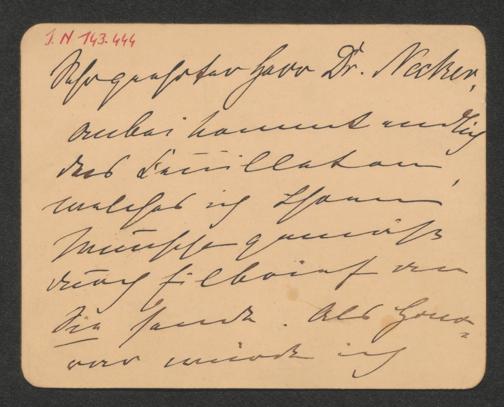 I. N 143.444
Sehr geehrter Herr Dr. Necker,
anbei kommt endlich
das Feuilleton,
welches ich Ihrem
Wunsche gemäß
durch Eilbrief an
Sie sende. Als Hono=
rar würde ich